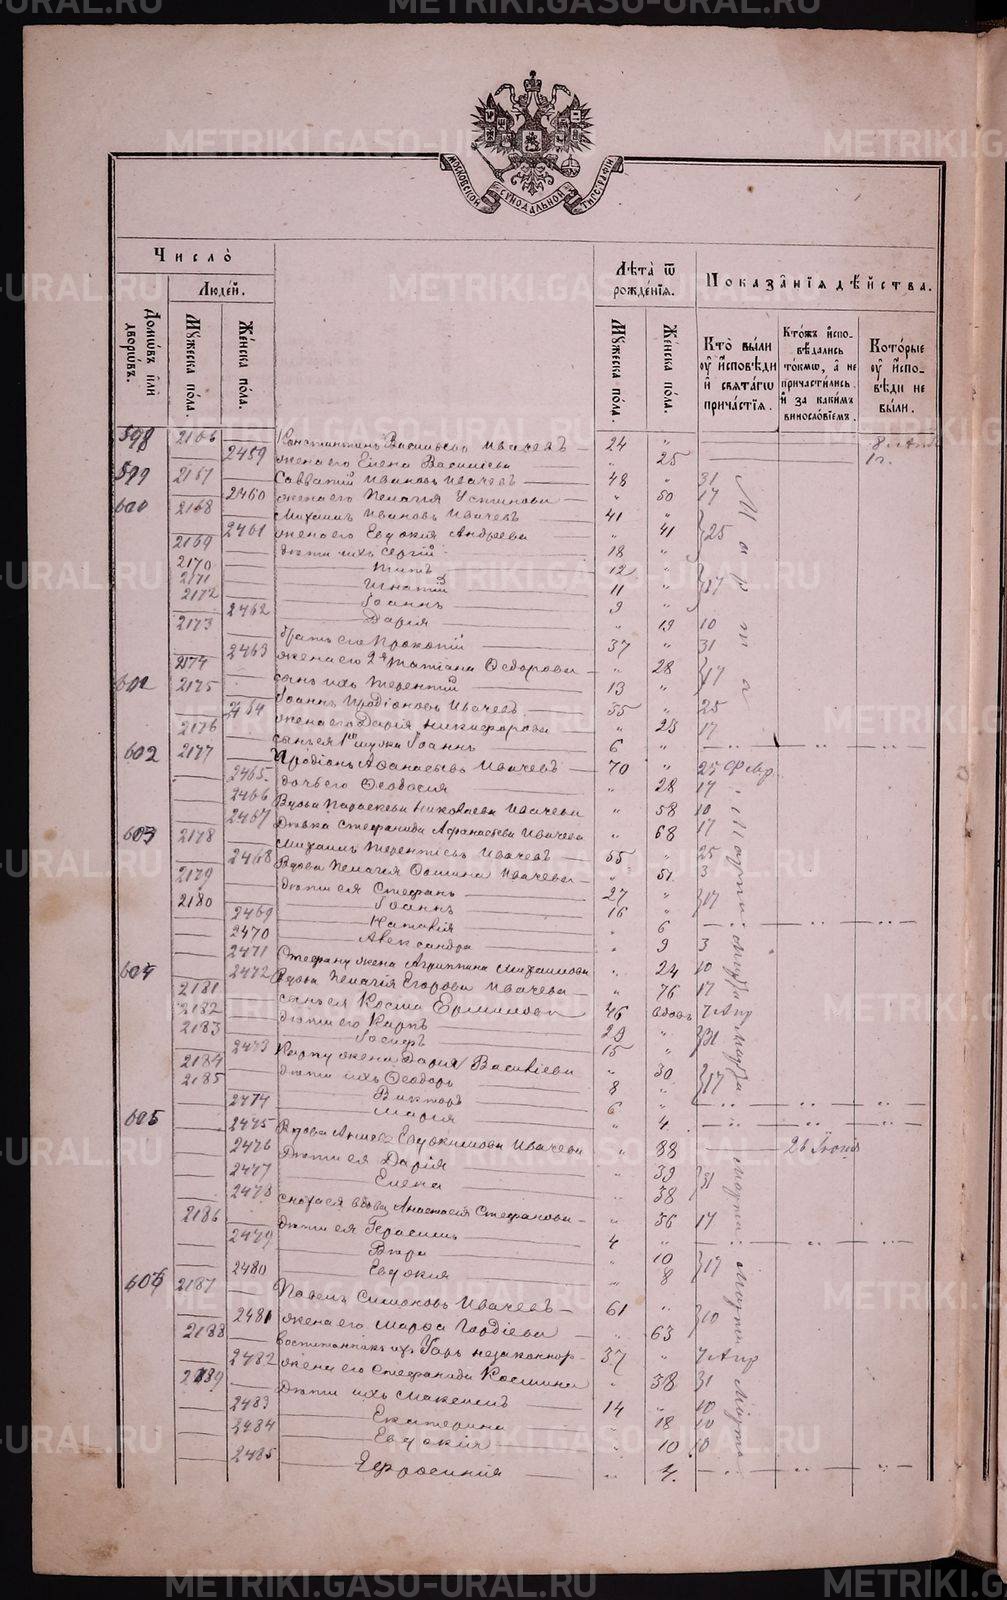 МОСКОВСКОЙ СУНОДАЛЬНОЙ ТИПОГРАФІИ
Число̀
Людей.
Домѡвъ или дворѡвъ.
Мꙋжеска пола.
Женска пола.
Лѣта ѿ рожденїя.
Мꙋжеска пола
Женска пола.
Показанїя дѣйства.
Кто были оу исповѣди и святагѡ причастїя.
Ктожъ исповѣдались токмѡ, а не причастились и за какимъ винословїемъ.
Которые оу исповѣди не были.
598 2166 Константинъ Васильевъ Ивачевъ 24 „
2459 жена его Елена Васильева „ 25 1 г.
599 2167 Савватій Ивановъ Ивачевъ 48 „ 31
2460 жена его Пелагія Устинова „ 50 17
600 2168 Михаилъ Ивановъ Ивачевъ 41 „
2461 жена его Евдокия Андреева „ 41 25
2169 дѣти ихъ Сергій 18 „
2170 Титъ 12 „
2171 Игнатій 11 „ 17
2172 Іоаннъ 9 „
2462 Дарія „ 13 10
2173 братъ его Прокопій 37 „ 31
2463 жена его 2я Татіана Ѳедорова „ 28 17
2174 сынъ ихъ Терентій 13 „
601 2175 Іоаннъ Иродіоновъ Ивачевъ 35 „ 25
2464 жена его Дарія Никифорова „ 23 17
2176 сынъ ея 1го мужа Іоаннъ 6 „
602 2177 Иродіонъ Аѳанасьевъ Ивачевъ 70 „ 25 Февр
2465 дочь его Ѳеодосія „ 28 17
2466 вдова Параскева Николаева Ивачева „ 58 10
2467 Дѣвка Стефанида Афанасьева Ивачева „ 68 17
603 2178 Михаилъ Терентьевъ Ивачевъ 55 „ 25
2468 Вдова Пелагія Ѳомина Ивачева „ 51 3
2179 дѣти ея Стефанъ 27 „ 17
2180 Іоаннъ 16 „
2469 Наталія „ 6
2470 Александра „ 9 3
2471 Стефану жена Агриппина Михайлова „ 24 10
604 2472 Вдова Пелагія Егорова Ивачева „ 76 17
2181 сынъ ея Косма Ермиловъ 46 вдовъ 7 Апр
2182 дѣти его Карпъ 23 „ 31
2183 Іосифъ 15 „
2473 Карпу жена Дарія Василіева „ 30 17
2184 дѣти ихъ Ѳеодоръ 8 „
2185 Викторъ 6 „
2474 Марія „ 4
605 2475 Вдова Евдокимова Ивачева „ 88 26 Іюня
2476 Дѣти ея Дарія „ 39 31
2477 Елена „ 38
2478 сноха ея вдова Анастасія Стефанова „ 36 17
2186 дѣти ея Герасимъ 4 „
2479 Вѣра „ 10 17
2480 Евдокия „ 8
606 2187 Павелъ Симоновъ Ивачевъ 61 „ 10
2481 жена его Марѳа Гордіева „ 63
2188 воспитанникъ ихъ незаконнор. 37 „ 7 Апр
2482 жена его Стефанида Космина „ 38 31
2189 Дѣти ихъ Максимъ 14 „ 10
2483 Екатерина „ 18 10
2484 Евдокія „ 10 10
2485 Ефросинія „ 4
Марта
Марта
Марта
Марта
Марта
METRIKI.GASO-URAL.RU